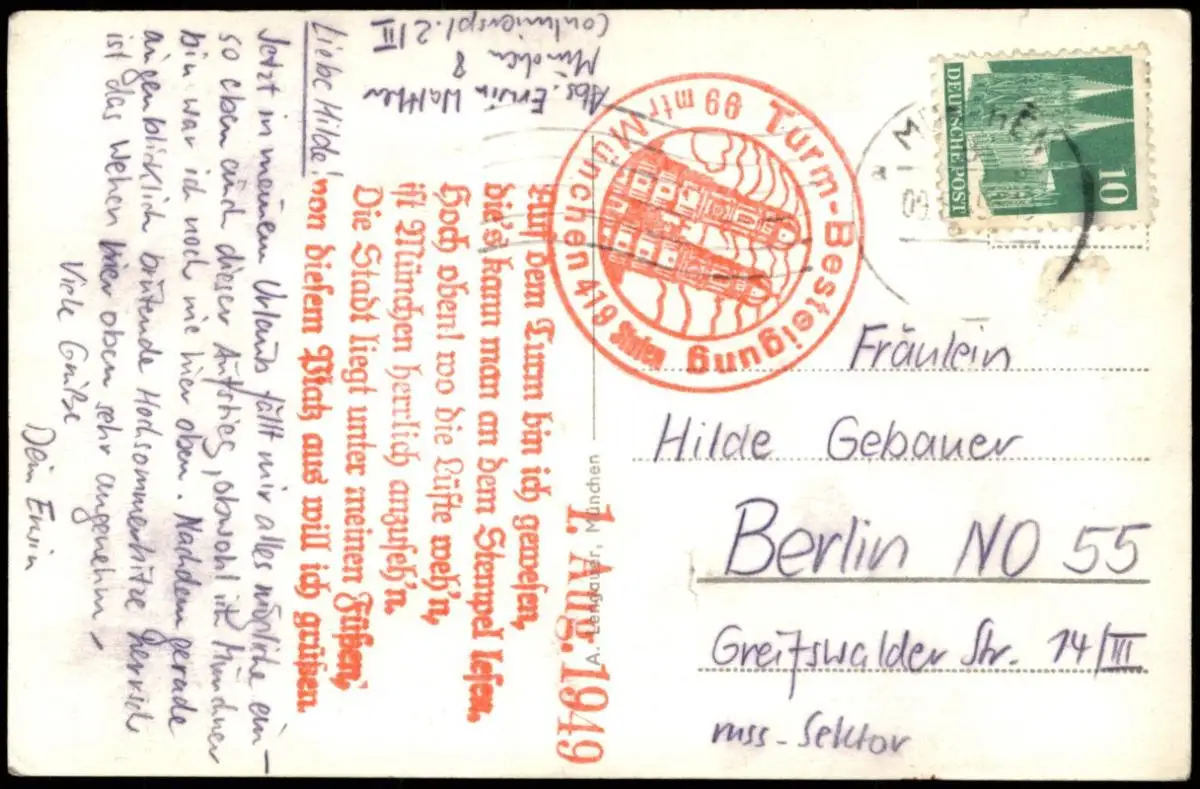 Abs. Erwin Walther
München 8
2/III
Liebe Hilde!
Jetzt in meinem Urlaub fällt mir alles mögliche ein –
so eben auch dieser Aufstieg, obwohl ich Münchner
bin war ich noch nie hier oben. Nachdem gerade
augenblicklich brütende Hochsommerhitze herrscht
ist das Wehen hier oben sehr angenehm –
Viele Grüße
Dein Erwin
Turm-Besteigung
99 mtr München 419 Stufen
Auf dem Turm bin ich gewesen,
die's kann man an dem Stempel lesen,
Hoch oben! wo die Lüfte weh'n,
ist München herrlich anzuseh'n.
Die Stadt liegt unter meinen Füßen,
von diesem Platz aus will ich grüßen.
1. Aug. 1949
A. Lengauer, München
DEUTSCHE POST
10
MÜNCHEN
Fräulein
Hilde Gebauer
Berlin NO 55
Greifswalder Str. 14/III
russ. Sektor